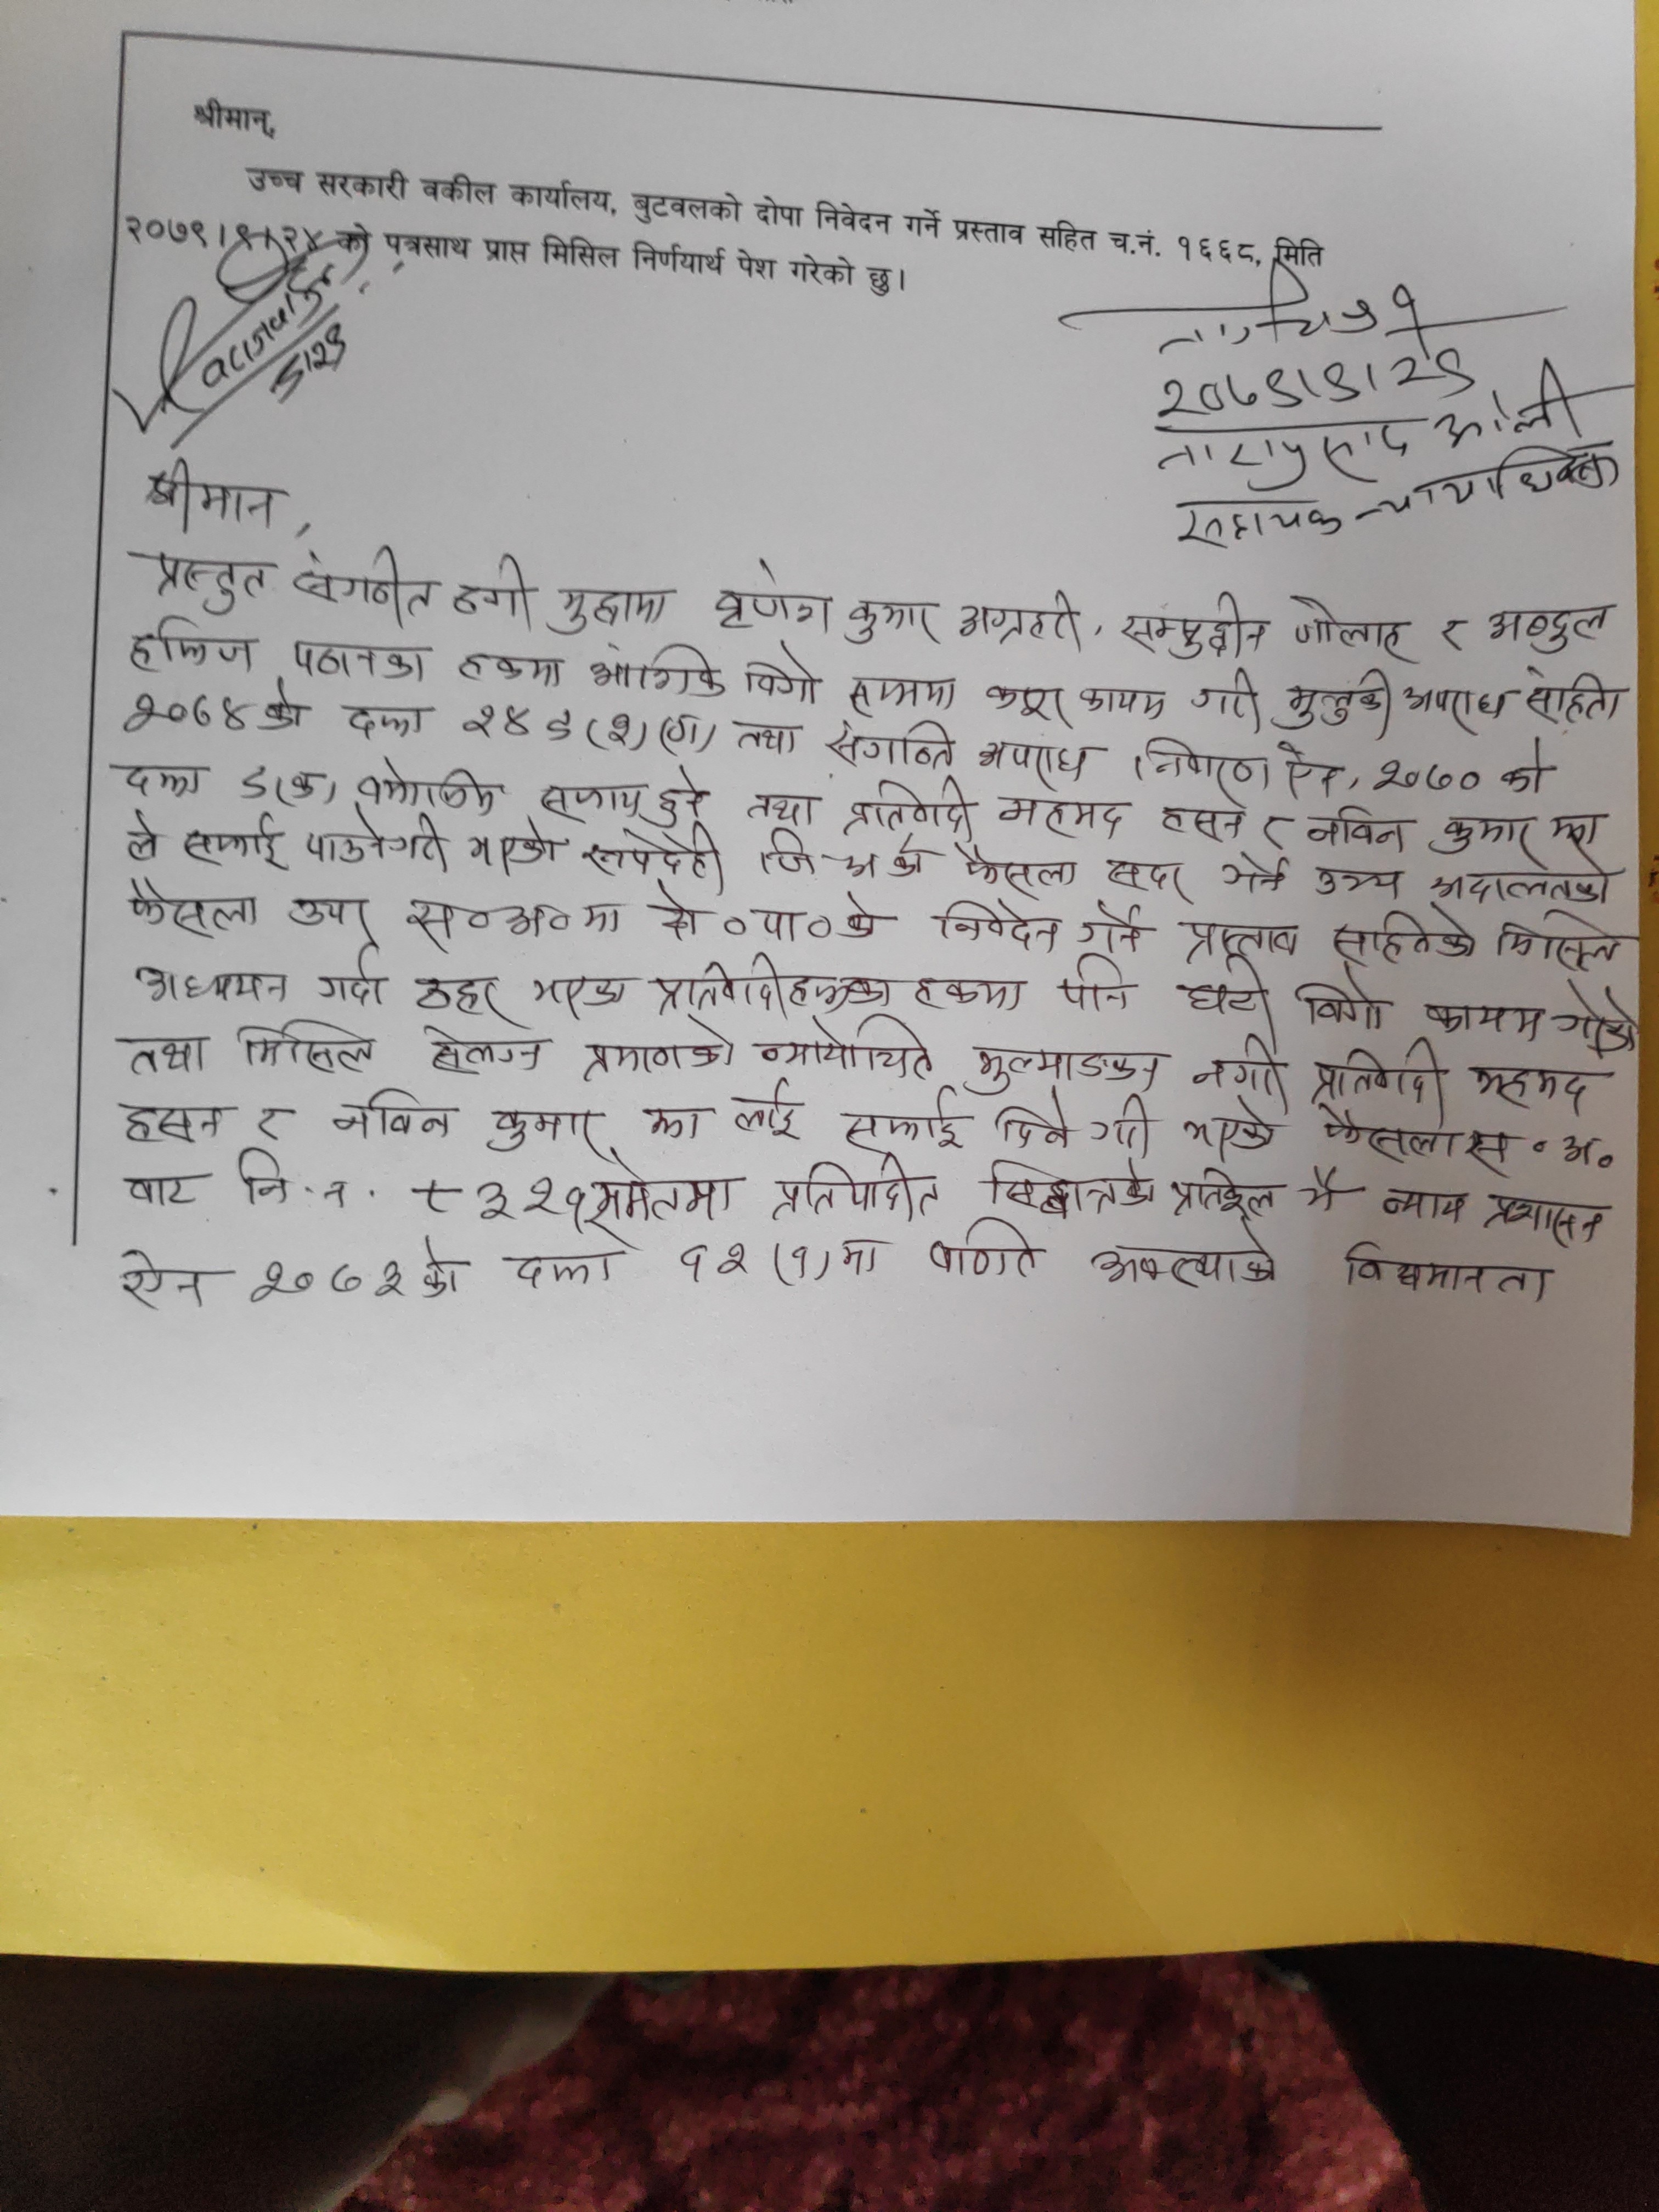 श्रीमान्,
उच्च सरकारी वकील कार्यालय, बुटवलको दोपा निवेदन गर्ने प्रस्ताव सहित च.नं. १६६८, मिति
२०७९।९।२४ को पत्रसाथ प्राप्त मिसिल निर्णयार्थ पेश गरेको छु।
९।२९
२०७९।९।२९
ताराप्रसाद ओली
सहायक न्यायाधिवक्ता
श्रीमान,
प्रस्तुत संगठीत ठगी मुद्दामा कुमार अग्रहरी, सम्सुद्दीन जोलाह र अब्दुल
हफिज पठानका हकमा आंशिक विगो सम्ममा कसूर कायम गरी मुलुकी अपराध संहिता
२०७४ को दफा २४९(२)(ग) तथा संगठित अपराध निवारण ऐन, २०७० को
दफा ९(क) बमोजिम सजाय हुने तथा प्रतिवादी महमद हसन र नविन कुमार झा
ले सफाई पाउनेगरी भएको रूपन्देही जि.अ.को फैसला सदर गर्ने उच्च अदालतको
फैसला उपर स०अ०मा दो०पा०को निवेदन गर्ने प्रस्ताव सहितको मिसिल
अध्ययन गर्दा ठहर भएका प्रतिवादीहरूका हकमा पनि घटी विगो कायम गरेको
तथा मिसिल संलग्न प्रमाणको न्यायोचित मुल्याङकन नगरी प्रतिवादी महमद
हसन र नविन कुमार झा लाई सफाई दिने गरी भएको फैसला स.अ.
बाट नि.नं. ८३२१ समेतमा प्रतिपादीत सिद्धान्तको प्रतिकूल भै न्याय प्रशासन
ऐन २०७३ को दफा १२(१)मा वर्णित अवस्थाको विद्यमानता